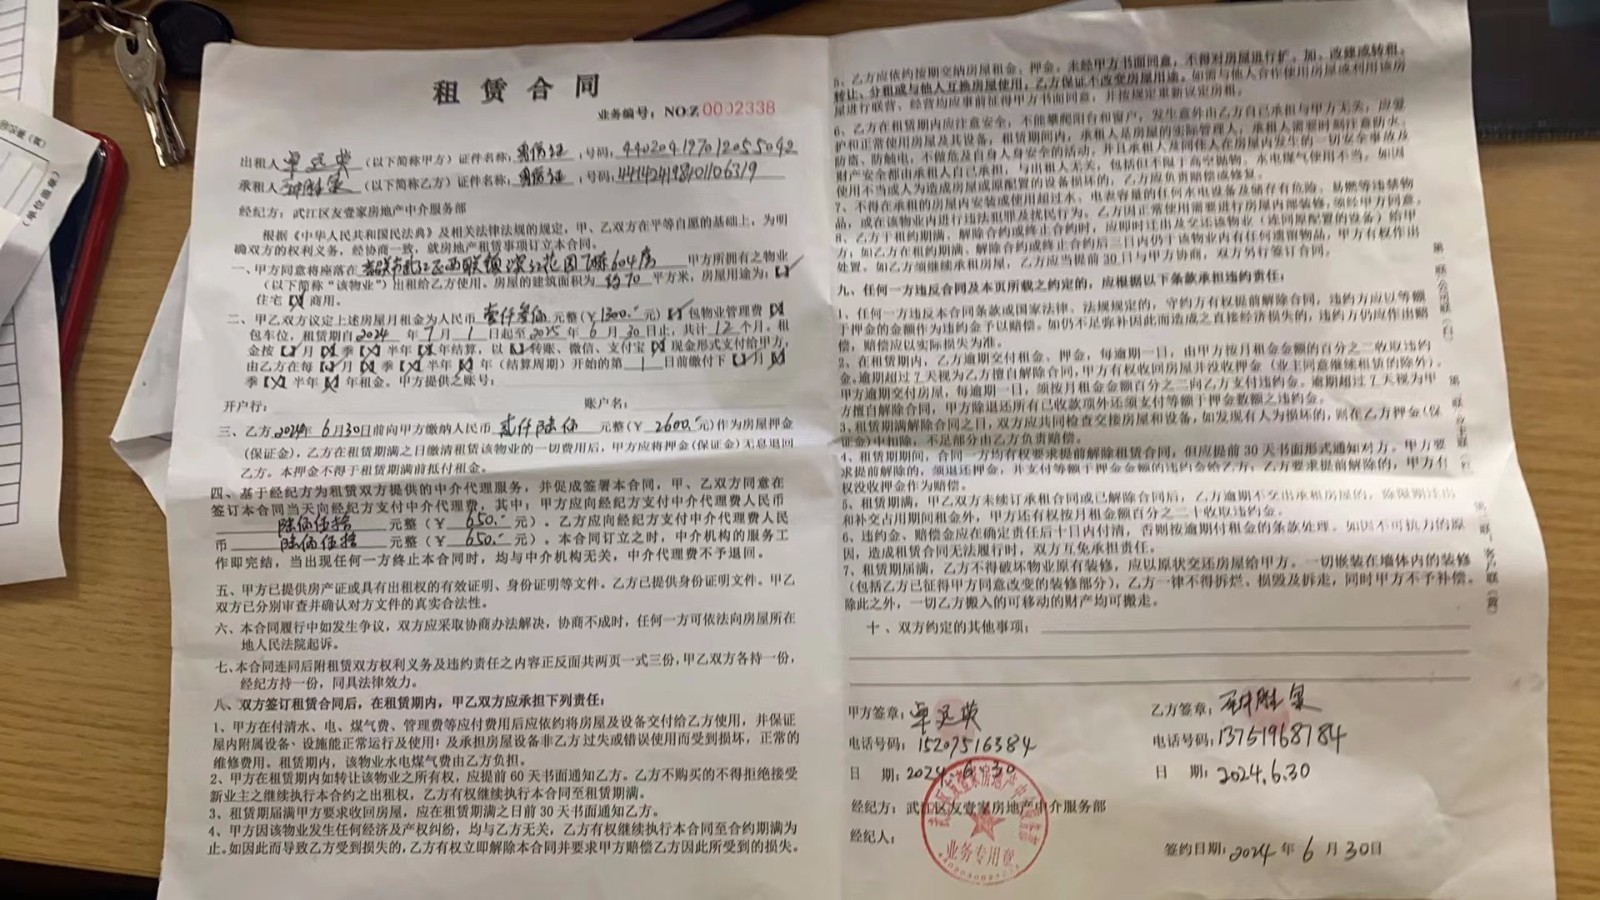 租赁合同
业务编号：NO:Z 0002338
出租人 卓运英 （以下简称甲方）证件名称：身份证 ，号码：440204197012055042
承租人 （以下简称乙方）证件名称：身份证 ，号码：
经纪方：武江区友壹家房地产中介服务部
根据《中华人民共和国民法典》及相关法律法规的规定，甲、乙双方在平等自愿的基础上，为明
确双方的权利义务，经协商一致，就房地产租赁事项订立本合同。
一、甲方同意将座落在 韶关市武江区西联镇 花园 604房 甲方所拥有之物业
（以下简称“该物业”）出租给乙方使用。房屋的建筑面积为 约70 平方米，房屋用途为：【✓】
住宅【×】商用。
二、甲乙双方议定上述房屋月租金为人民币 壹仟叁佰 元整（¥ 1300.- 元）【✓】包物业管理费【×】
包车位，租赁期自2024 年 7 月 1 日起至 2025 年 6 月 30 日止，共计 12 个月。租
金按【✓】月【×】季【×】半年【×】年结算，以【✓】转账、微信、支付宝【×】现金形式支付给甲方，
由乙方在每【✓】月【×】季【×】半年【×】年（结算周期）开始的第 1 日前缴付下【✓】月【×】
季【×】半年【×】年租金。甲方提供之账号：
开户行： 账户名：
三、乙方 2024年 6月30日前向甲方缴纳人民币 贰仟陆佰 元整（¥ 2600.- 元）作为房屋押金
（保证金），乙方在租赁期满之日缴清租赁该物业的一切费用后，甲方应将押金（保证金）无息退回
乙方。本押金不得于租赁期满前抵付租金。
四、基于经纪方为租赁双方提供的中介代理服务，并促成签署本合同，甲、乙双方同意在
签订本合同当天向经纪方支付中介代理费，其中：甲方应向经纪方支付中介代理费人民币
陆佰伍拾 元整（¥ 650.- 元）。乙方应向经纪方支付中介代理费人民
币 陆佰伍拾 元整（¥ 650.- 元）。本合同订立之时，中介机构的服务工
作即完结，当出现任何一方终止本合同时，均与中介机构无关，中介代理费不予退回。
五、甲方已提供房产证或具有出租权的有效证明、身份证明等文件。乙方已提供身份证明文件。甲乙
双方已分别审查并确认对方文件的真实合法性。
六、本合同履行中如发生争议，双方应采取协商办法解决，协商不成时，任何一方可依法向房屋所在
地人民法院起诉。
七、本合同连同后附租赁双方权利义务及违约责任之内容正反面共两页一式三份，甲乙双方各持一份，
经纪方持一份，同具法律效力。
八、双方签订租赁合同后，在租赁期内，甲乙双方应承担下列责任：
1、甲方在付清水、电、煤气费、管理费等应付费用后应依约将房屋及设备交付给乙方使用，并保证
屋内附属设备、设施能正常运行及使用；及承担房屋设备非乙方过失或错误使用而受到损坏，正常的
维修费用。租赁期内，该物业水电煤气费由乙方负担。
2、甲方在租赁期内如转让该物业之所有权，应提前60天书面通知乙方。乙方不购买的不得拒绝接受
新业主之继续执行本合约之出租权，乙方有权继续执行本合同至租赁期满。
3、租赁期届满甲方要求收回房屋，应在租赁期满之日前30天书面通知乙方。
4、甲方因该物业发生任何经济及产权纠纷，均与乙方无关，乙方有权继续执行本合同至合约期满为
止。如因此而导致乙方受到损失的，乙方有权立即解除本合同并要求甲方赔偿乙方因此所受到的损失。
5、乙方应依约按期交纳房屋租金、押金，未经甲方书面同意，不得对房屋进行扩、加、改建或转租、
转让、分租或与他人互换房屋使用，乙方保证不改变房屋用途。如需与他人合作使用房屋或利用该房
屋进行联营、经营均应事前征得甲方书面同意，并按规定重新议定房租。
6、乙方在租赁期内应注意安全，不能攀爬阳台和窗户，发生意外由乙方自己承担与甲方无关，应爱
护和正常使用房屋及其设备，租赁期间内，承租人是房屋的实际管理人，承租人需要时刻注意防火、
防盗、防触电，不做危及自身人身安全的活动，并且承租人及同住人在房屋内发生的一切安全事故及
财产安全都由承租人自己承担，与出租人无关，包括但不限于高空抛物、水电煤气使用不当。如因
使用不当或人为造成房屋或原配置的设备损坏的，乙方应负责赔偿或修复。
7、不得在承租的房屋内安装或使用超过水、电表容量的任何水电设备及储存有危险、易燃等违禁物
品，或在该物业内进行违法犯罪及扰民行为。乙方因正常使用需要进行房屋内部装修，须经甲方同意。
8、乙方于租约期满、解除合约或终止合约时，应即时迁出及交还该物业（连同原配置的设备）给甲
方；如乙方在租约期满、解除合约或终止合约后三日内仍于该物业内有任何遗留物品，甲方有权作出
处置。如乙方须继续承租房屋，乙方应当提前30日与甲方协商，双方另行签订合同。
九、任何一方违反合同及本页所载之约定的，应根据以下条款承担违约责任：
1、任何一方违反本合同条款或国家法律、法规规定的，守约方有权提前解除合同，违约方应以等额
于押金的金额作为违约金予以赔偿。如仍不足弥补因此而造成之直接经济损失的，违约方仍应作出赔
偿，赔偿应以实际损失为准。
2、在租赁期内，乙方逾期交付租金、押金，每逾期一日，由甲方按月租金金额的百分之二收取违约
金。逾期超过7天视为乙方擅自解除合同，甲方有权收回房屋并没收押金（业主同意继续租赁的除外）。
甲方逾期交付房屋，每逾期一日，须按月租金金额百分之二向乙方支付违约金。逾期超过7天视为甲
方擅自解除合同，甲方除退还所有已收款项外还须支付等额于押金数额之违约金。
3、租赁期满解除合同之日，双方应共同检查交接房屋和设备，如发现有人为损坏的，则在乙方押金（保
证金）中扣除，不足部分由乙方负责赔偿。
4、租赁期期间，合同一方均有权要求提前解除租赁合同，但应提前30天书面形式通知对方。甲方要
求提前解除的，须退还押金，并支付等额于押金金额的违约金给乙方；乙方要求提前解除的，甲方有
权没收押金作为赔偿。
5、租赁期满，甲乙双方未续订承租合同或已解除合同后，乙方逾期不交出承租房屋的，除限期迁出
和补交占用期间租金外，甲方还有权按月租金金额百分之二十收取违约金。
6、违约金、赔偿金应在确定责任后十日内付清，否则按逾期付租金的条款处理。如因不可抗力的原
因，造成租赁合同无法履行时，双方互免承担责任。
7、租赁期届满，乙方不得破坏物业原有装修，应以原状交还房屋给甲方。一切嵌装在墙体内的装修
（包括乙方已征得甲方同意改变的装修部分），乙方一律不得拆烂、损毁及拆走，同时甲方不予补偿。
除此之外，一切乙方搬入的可移动的财产均可搬走。
十、双方约定的其他事项：
甲方签章：卓运英 乙方签章：
电话号码：15207516384 电话号码：13751968784
日 期：2024.6.30 日 期：2024.6.30
经纪方：武江区友壹家房地产中介服务部
经纪人：
签约日期：2024 年 6 月 30日
业务专用章